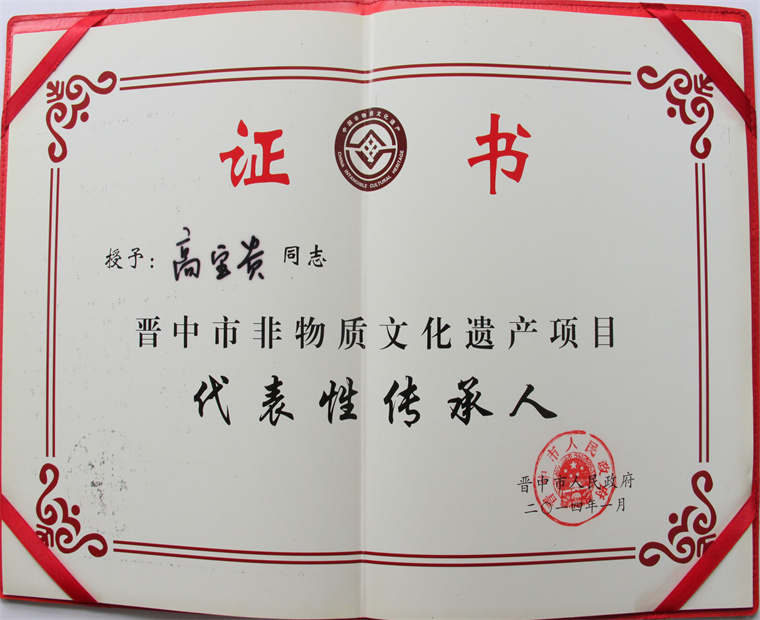 证 书
中国非物质文化遗产
CHINA INTANGIBLE CULTURAL HERITAGE
授予：高宝贵 同志
晋中市非物质文化遗产项目
代表性传承人
晋中市人民政府
晋中市人民政府
二〇一四年一月